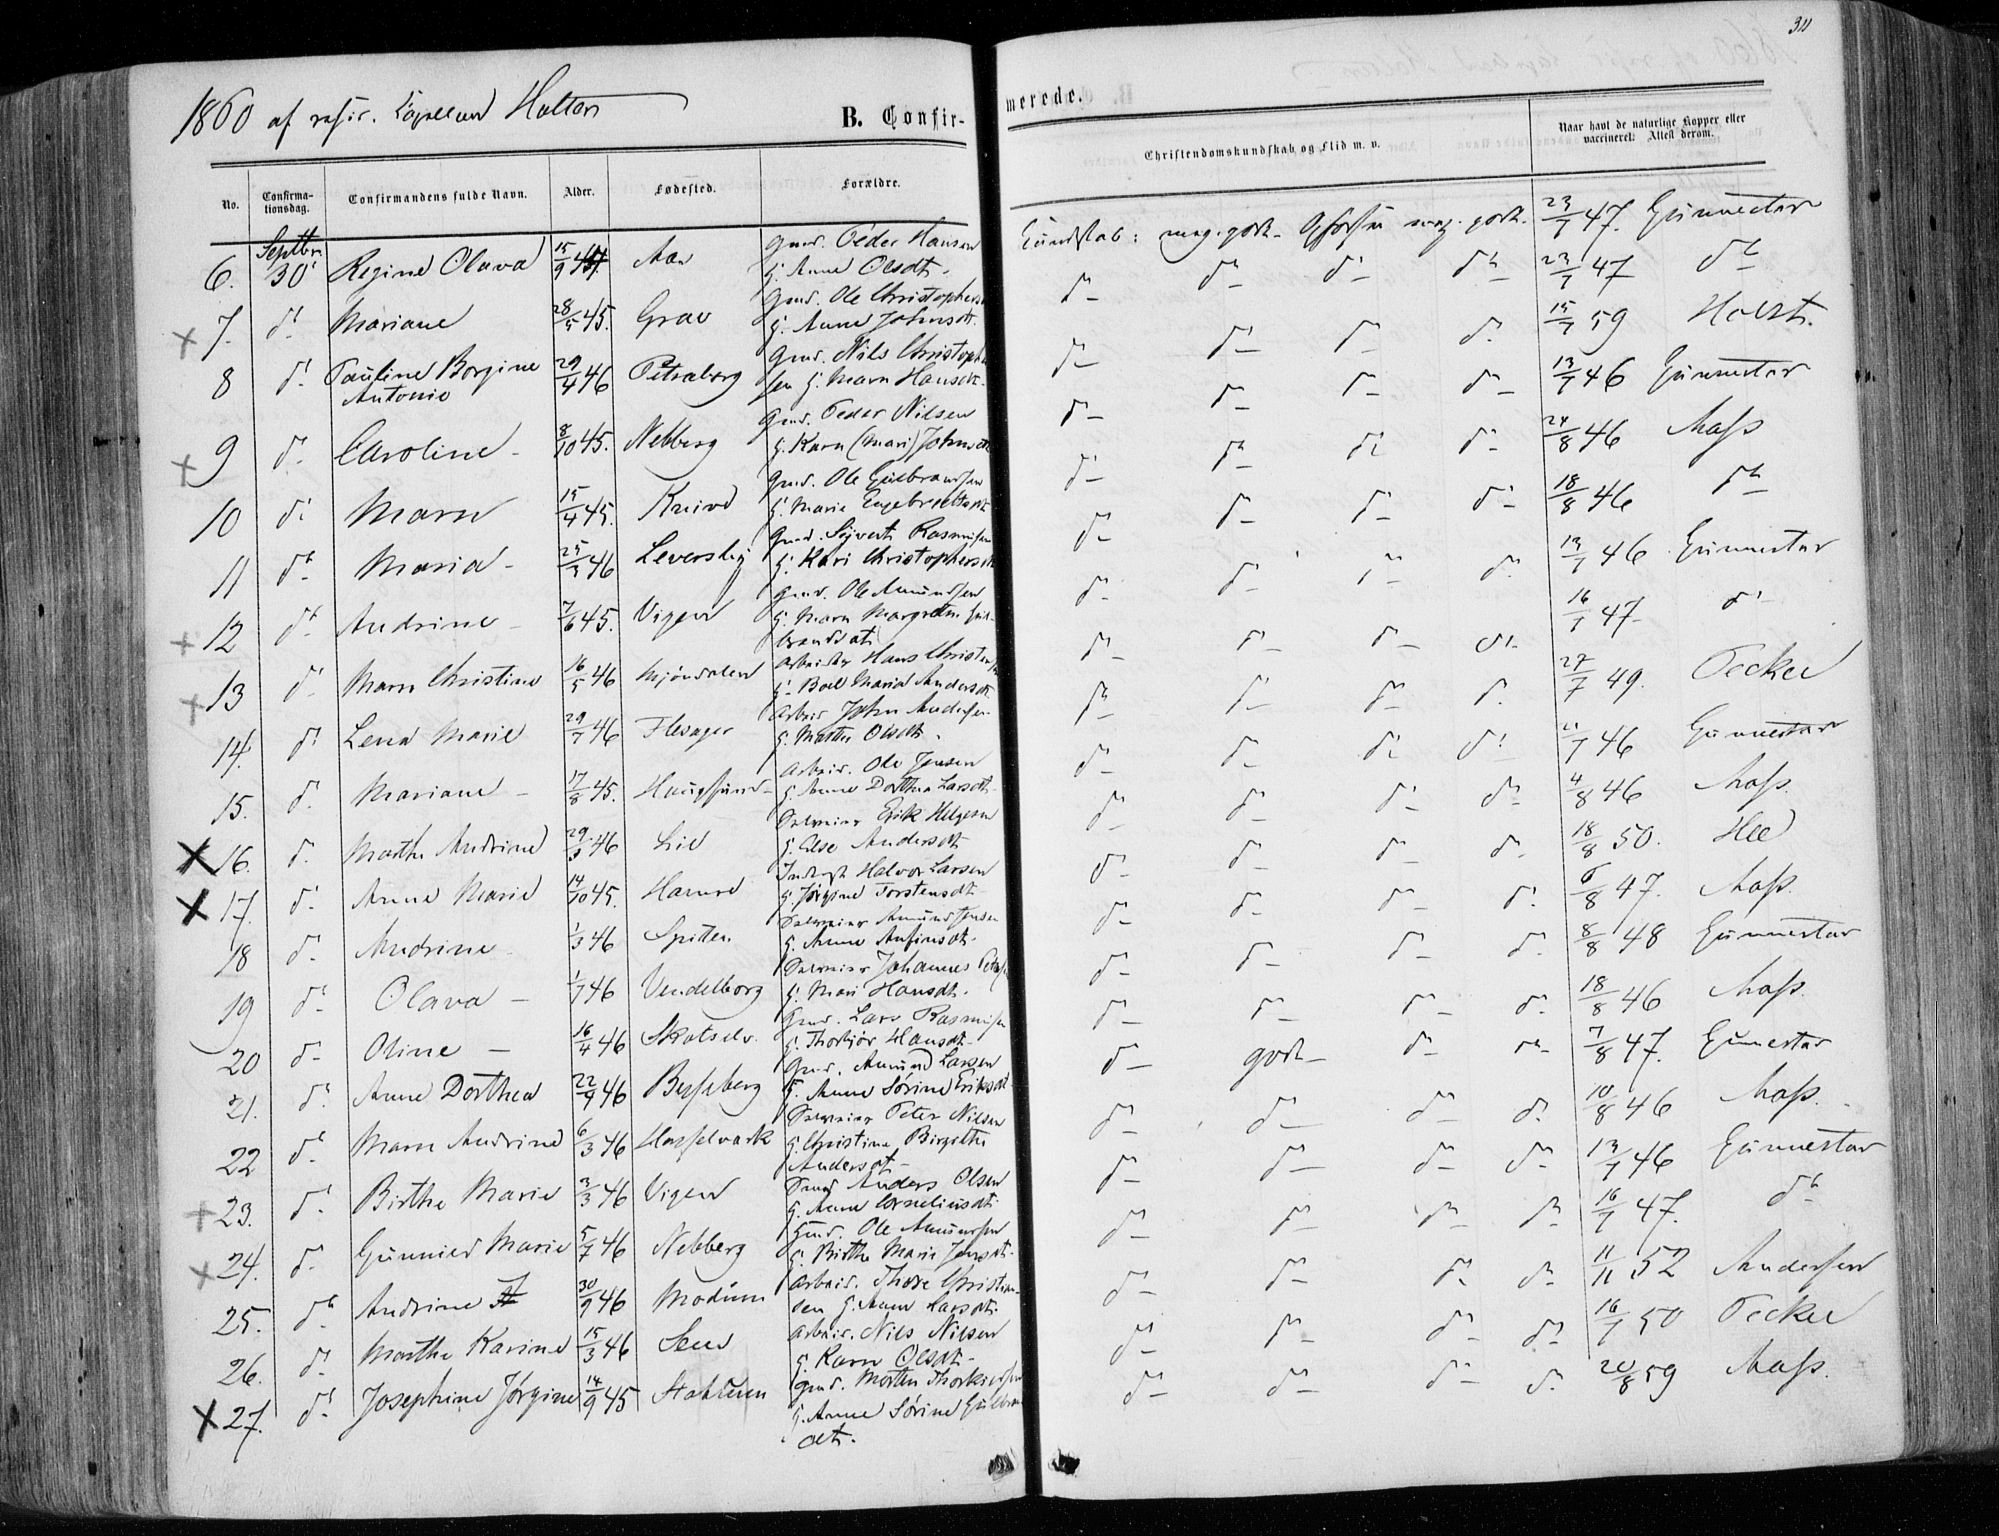 311
1860 af resid. Capellan Holter
B. Confir-
merede.
No. Confirma-tionsdag. Confirmandens fulde Navn. Alder. Fødested. Forældre.
Christendomskundskab og Flid m. v. Naar havt de naturlige Kopper eller vaccineret: Attest derom.
6. Septbr. 30 Regine Olava 15/9 Aas Gmd. Peder Hansen
G. Anne Olsdt. Kundskab: meg. godt - Opførsel meg. godt. 23/7 47. Gunnestar
7. dº Mariane 28/5 45. Grav Gmd. Ole Christophers
G. Anne Johnsdt. dº dº dº dº 23/7 47 dº
8 dº Pauline Borgine Antonie 29/4 46 Petraborg Gmd. Nils Christoph
sen G. Maren Hansdt. dº dº dº dº 15/7 59 Holst.
9 dº Caroline - 8/10 45. Nebberg Gmd. Peder Nilsen
G. Karen (Mari) Johnsdt dº dº dº dº 13/7 46 Gunnestar
10 dº Maren 15/4 45. Knive Gmd. Ole Gulbrandsen
G. Marie Engebrechtsdt dº dº dº dº 24/8 46 Aass
11 dº Maria - 25/3 46 Leversby Gmd. Sivert Rasmusen
G. Kari Christophersdt dº dº dº dº 18/8 46 dº
12 dº Andrine - 7/6 45. Vigen Gmd. Ole Amundsen
G. Maren Margrethe Gul-
brandsdt dº dº dº dº 13/7 46 Gunnestar
13 dº Maren Christine 16/5 46 Mjøndalen Arbeider Hans Christensen
G. Boel Maria Andersdt dº dº dº dº 16/7 47 dº
14. dº Lena Marie 29/7 46 Flesager Arbeid. John Andersen
G. Marthe Olsdt. dº dº dº dº 27/7 49. Pecker
15. dº Mariane - 17/8 45. Haugsund Arbeid. Ole Jensen
G. Anne Dorthea Larsdt. dº dº dº dº 7 46 Gunnestar
16. dº Marthe Andrine 29/3 46 Lie Erik Helgesen
G. Else Andersdt dº dº dº dº 4/8 46 Aass.
17. dº Anne Marie 14/10 45. Hamre Inderst Halvor Larsen
G. Jørgine Torstensdt dº dº dº dº 18/8 50. Hee
18 dº Andrine 1/3 46 Spitten Amund Jensen
G. Anne Anfinsdt. dº dº dº dº 6/8 47. Aass.
19 dº Olava - 1/7 46 Vendelborg Johannes
G. Mari Hansdt. dº dº dº dº 8/8 48 Gunnestar
20 dº Oline - 16/4 46 Skotselv. Gmd. Lars Rasmusen
G. Thorbjør Hansdt. dº dº dº dº 18/8 46 Aass.
21. dº Anne Dorthea 22/4 46 Besseberg Gmd. Amund Larsen
G. Anne Sørine Eriksdt dº godt - dº dº 7/8 47. Gunnestar
22 dº Maren Andrine 6/3 46 Hasselværk Peter Nilsen
G. Christine Birgithe
Andersdt. dº dº dº dº 10/8 46 Aass.
23. dº Birthe Marie 3/3 46 Vigen Anders Olsen
G. Anne Corneliusdt. dº dº dº dº 13/7 46 Gunnestar
24. dº Gunnild Marie 5/7 46 Nebberg Gmd. Ole Amundsen
G. Birthe Marie Jensdt. dº dº dº dº 16/7 47. dº
25. dº Andrine 30/9 46 Modum Arbeid. Thore Christian-
sen G. Anne Larsdt. dº dº dº dº 11/11 52 Andersen
26. dº Marthe Karine 15/3 46 Arbeid. Nils Nilsen
G. Karen Olsdt. dº dº dº dº 16/7 50 Pecker
27. dº Josephine Jørgine 14/9 45 Gmd. Morten Thorkildsen
G. Anne Sørine Gulbran
dt. dº dº dº dº 20/8 59 Aass.